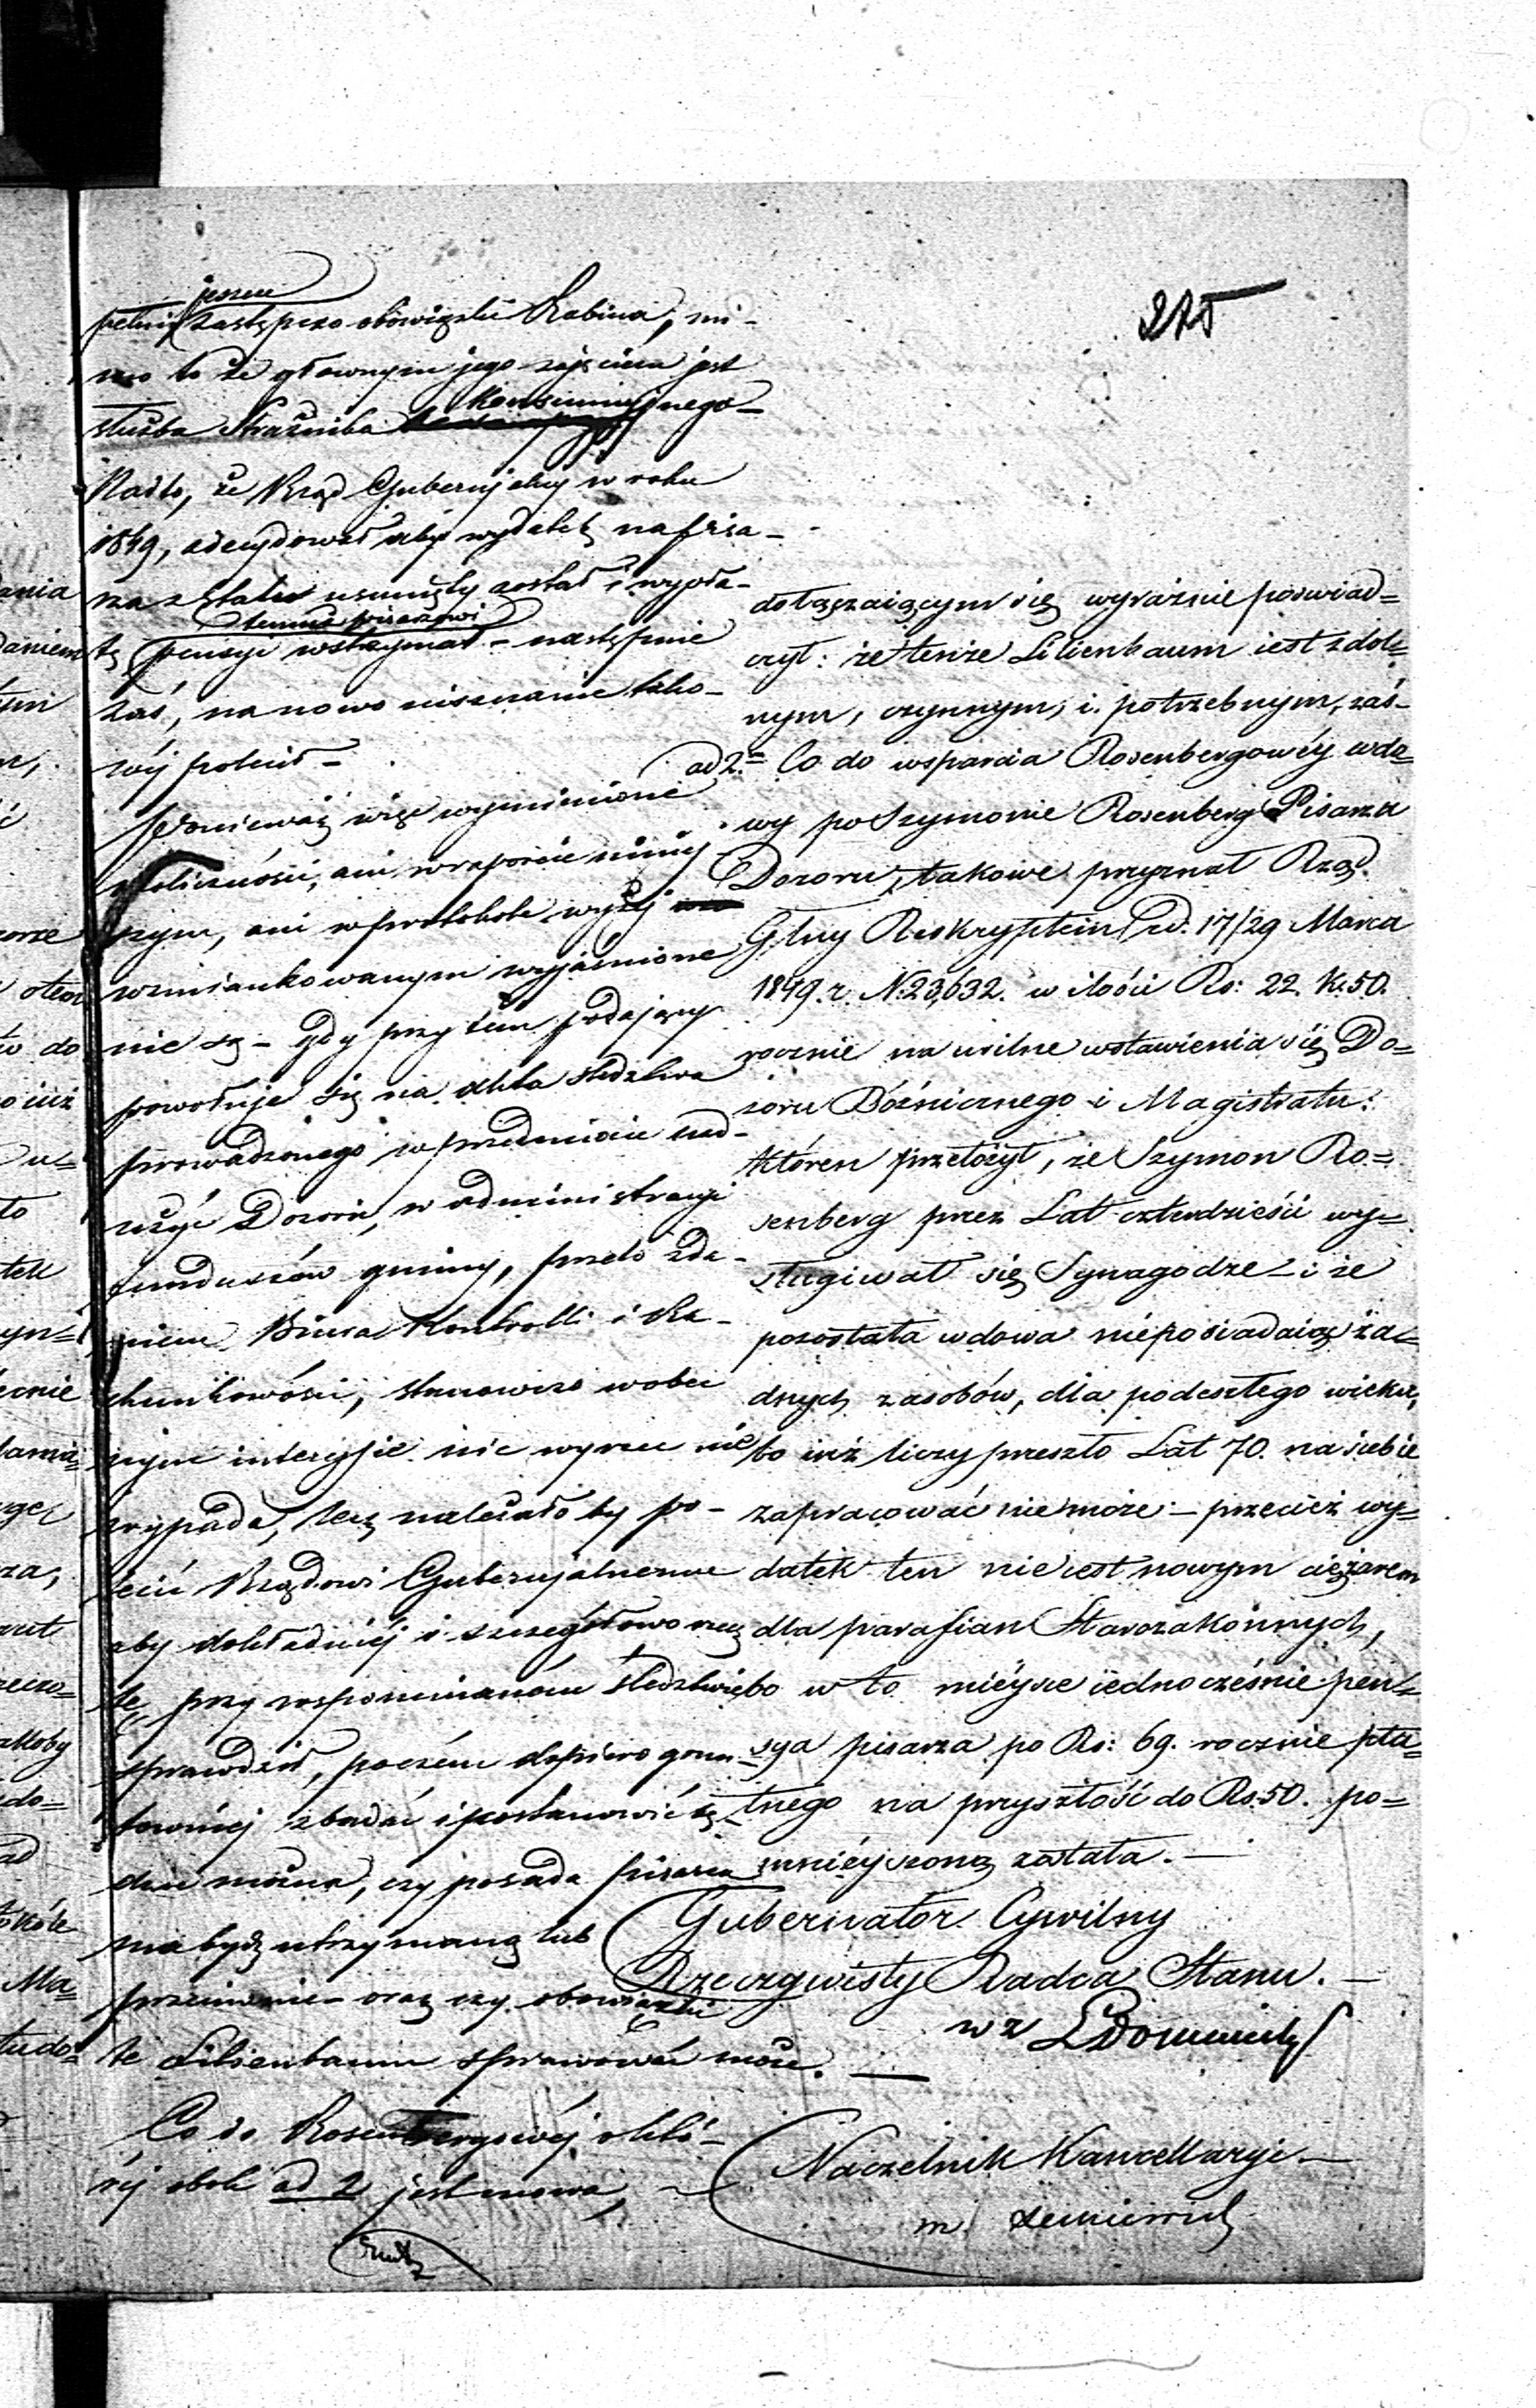 275
jeszcze
pełni zastępczo obowiązki Rabina, mi-
mo to że głownym jego zajęciem jest
Konsumcyjnego-
służba Strażnika
Nadto, że Rząd Gubernjalny w roku
1849, zdecydował aby wydatek na pisa-
rza z etatu usunięty został i wypła-
temuż pisarzowi
tę pensyi wstrzymał - następnie
zaś, na nowo uiszczanie tako-
wéj polecił -
Ponieważ więc wymienione
okoliczności, ani w raporcie niniej
szym, ani w protokole wyżéj
wzmiankowanym wyjaśnione
nie są - gdy przy tém podający
powołuje się na akta śledztwa
prowadzonego w przedmiocie nad-
użyć Dozoru, w administracyi
funduszów gminy, przeto zda-
niem Biura Kontrolli i Ra-
chunkowości, stanowczo w obec
nym interessie nic wyrzec nie
wypada, lecz należało by po-
lecić Rządowi Gubernjalnemu
aby dokładniéj i szczegółowo rzecz
tę, przy wspomnianém śledztwie
sprawdził, poczém dopiero grun-
towniéj zbadać i postanowić bę-
dzie można, czy posada pisarza
ma bydź utrzymaną lub
przeciwnie - oraz czy obowiązki
te Lilienbaum sprawować może.
Co do Rosenbergowéj o któ-
réj obok ad 2 jest mowa,
dołączaiącym się wyraźnie poswiad=
czył: że tenże Lilienbaum iest zdol=
nym, czynnym, i potrzebnym, zaś-
ad 2. Co do wsparcia Rosenbergowéy wdo=
wy po Szymonie Rosenberg Pisarza
Dozoru, takowe przyznał Rząd
Glny Reskryptem z d. 17/29 Marca
1849. r. N. 23,632. w ilości Rs: 22. K. 50.
rocznie na usilne wstawienia się Do=
zoru Bóźnicznego i Magistratu:
któren przełożył, że Szymon Ro=
senberg przez Lat czterdzieści wy=
sługiwał się Synagodze - i że
pozostała wdowa nieposiadaiąc ża=
dnych zasobów, dla podeszłego wieku,
bo iuż liczy przeszło Lat 70. na siebie
zapracować nie może - przecież wy=
datek ten nie iest nowym ciężarem
dla parafian Starozakonnych,
bo w to mieysce iednocześnie pen=
sya pisarza po Rs: 69. rocznie płat=
tnego na przyszłość do Rs. 50. po=
mnieyszoną została. -
Gubernator Cywilny
Rzeczywisty Radca Stanu. -
w z
Naczelnik Kancellaryi -